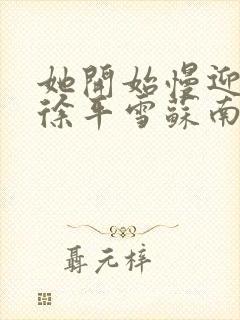 她開始慢迎
徐平雪蘇南
聶元梓